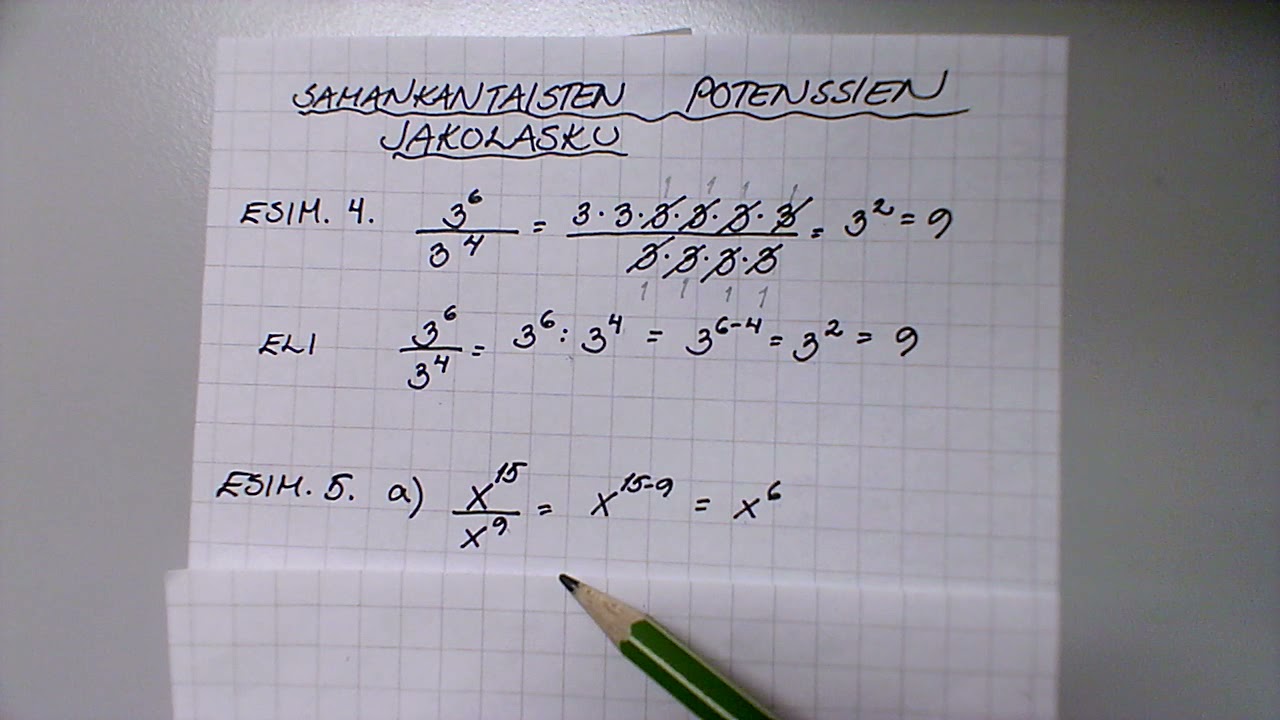 SAMANKANTAISTEN POTENSSIEN
JAKOLASKU
ESIM. 4. 3^6/3^4 = (3·3·3·3·3·3)/(3·3·3·3) = 3^2 = 9
1 1 1 1
1 1 1 1
ELI 3^6/3^4 = 3^6 : 3^4 = 3^(6-4) = 3^2 = 9
ESIM. 5. a) x^15/x^9 = x^(15-9) = x^6